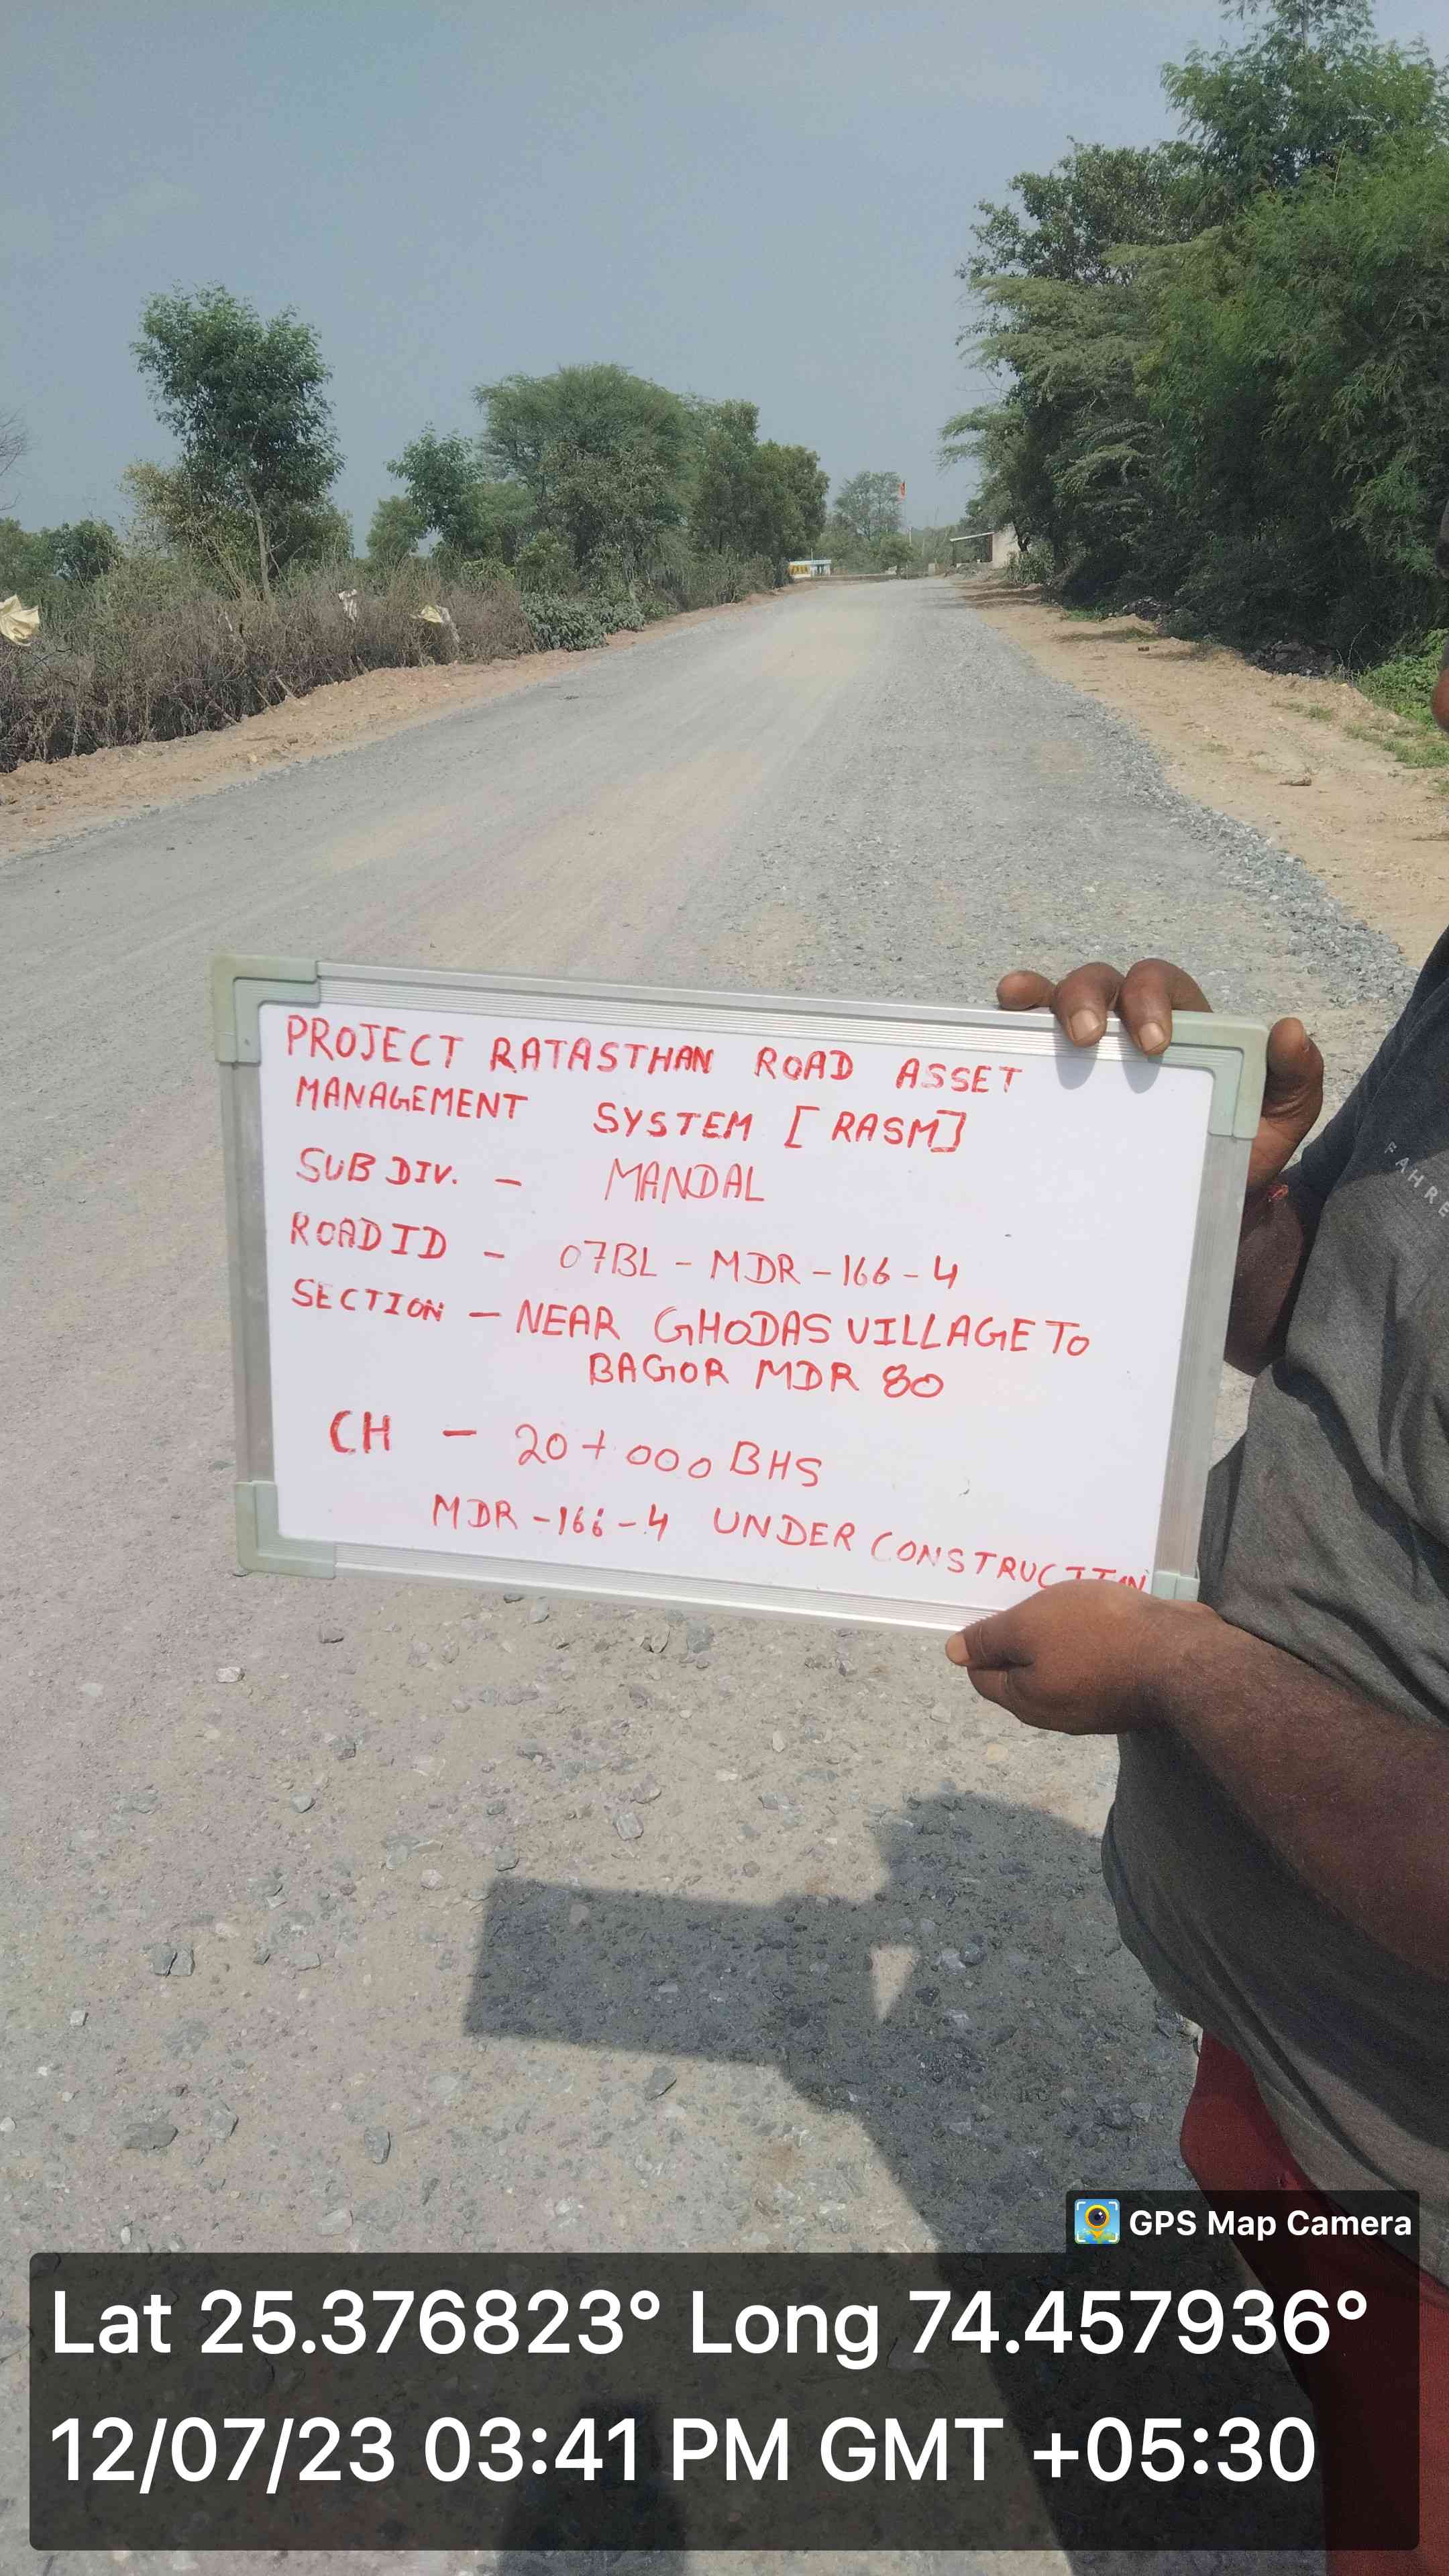 PROJECT RATASTHAN ROAD ASSET
MANAGEMENT SYSTEM [RASM]
SUB DIV. - MANDAL
ROAD ID - 07BL - MDR - 166 - 4
SECTION - NEAR GHODAS VILLAGE TO
BAGOR MDR 80
CH - 20+000 BHS
MDR - 166 - 4 UNDER CONSTRUCTION
FAHRE
GPS Map Camera
Lat 25.376823° Long 74.457936°
12/07/23 03:41 PM GMT +05:30